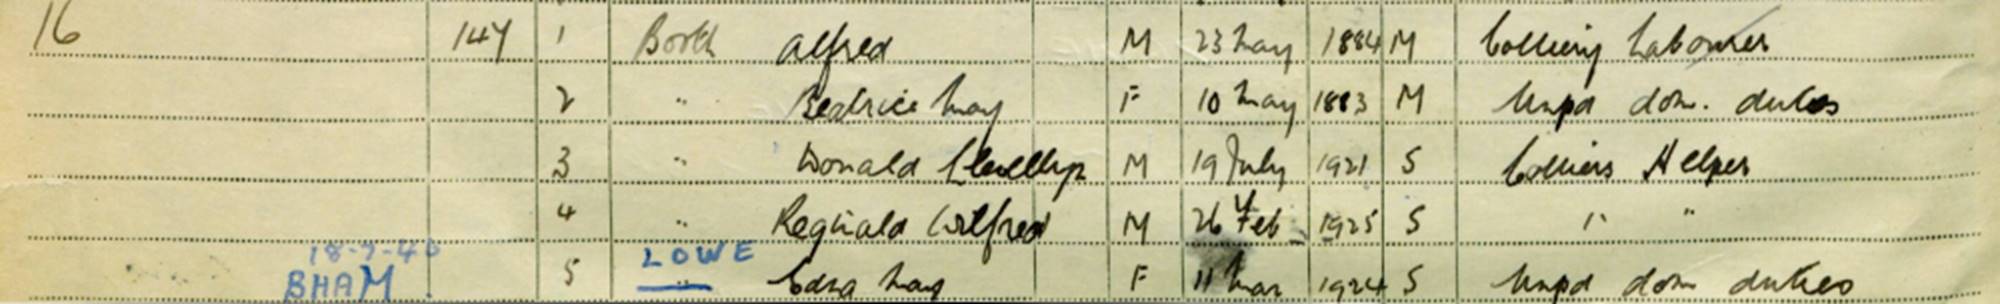 16 147 1 Booth Alfred M 23 May 1884 M Colliery Labourer
2 " Beatrice May F 10 May 1883 M Unpd dom. duties
3 " Donald Llewellyn M 19 July 1921 S Colliers Helper
4 " Reginald Wilfred M 26 Feb 1925 S " "
18-7-40 LOWE
BHAM. 5 " May F 11 Mar 1924 S Unpd dom duties